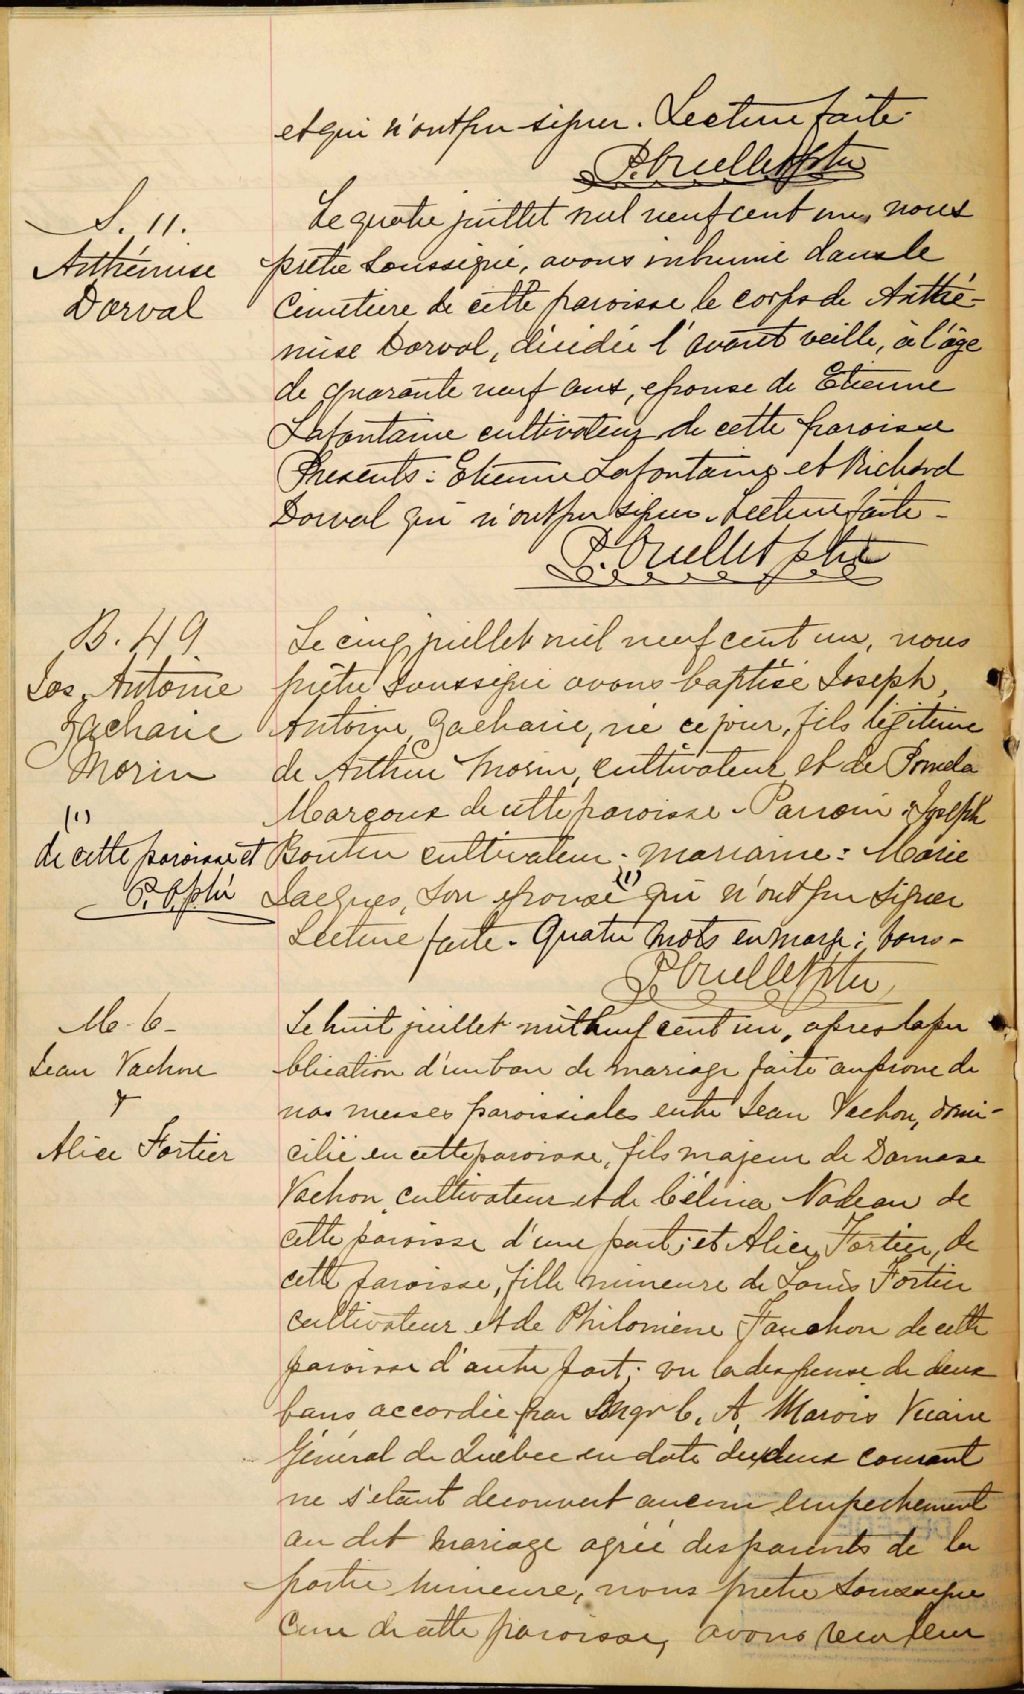 et qui n'ont pu signer. Lecture faite.
P. Ouellet ptre
S. 11.
Arthémise
Dorval
Le quatre juillet mil neuf cent un, nous
prêtre soussigné, avons inhumé dans le
cimetière de cette paroisse le corps de Arthé-
mise Dorval, décédée l'avant veille, à l'âge
de quarante neuf ans, epouse de Etienne
Lafontaine cultivateur de cette paroisse
Présents: Etienne Lafontaine et Richard
Dorval qui n'ont pu signer. Lecture faite -
P. Ouellet ptre
B. 49.
Jos. Antoine
Zacharie
Morin
Le cinq juillet mil neuf cent un, nous
prêtre soussigné avons baptisé Joseph,
Antoine, Zacharie, né ce jour, fils légitime
de Arthur Morin, cultivateur et de
Marcoux de cette paroisse - Parrain: Joseph
Boutin cultivateur. marraine: Marie
Jacques, son epouse (1) qui n'ont pu signer
Lecture faite. Quatre mots en marge: bons -
P. Ouellet ptre
(1)
de cette paroisse et
P.O. ptre
M. 6 -
Jean Vachon
&
Alice Fortier
Le huit juillet mil neuf cent un, apres la pu
blication d'un ban de mariage faite au prone de
nos messes paroissiales entre Jean Vachon, domi-
cilié en cette paroisse, fils majeur de Damase
Vachon cultivateur et de Célina Nadeau de
cette paroisse d'une part; et Alice Fortier, de
cette paroisse, fille mineure de Louis Fortier
cultivateur et de Philomène Fauchon de cette
paroisse d'autre part; vu la dispense de deux
bans accordée par Mgr C. A. Marois Vicaire
Général de Québec en date du deux courant
ne s'etant decouvert aucun empechement
au dit mariage agréé des parents de la
partie mineure, nous pretre soussigné
Curé de cette paroisse, avons recu leur